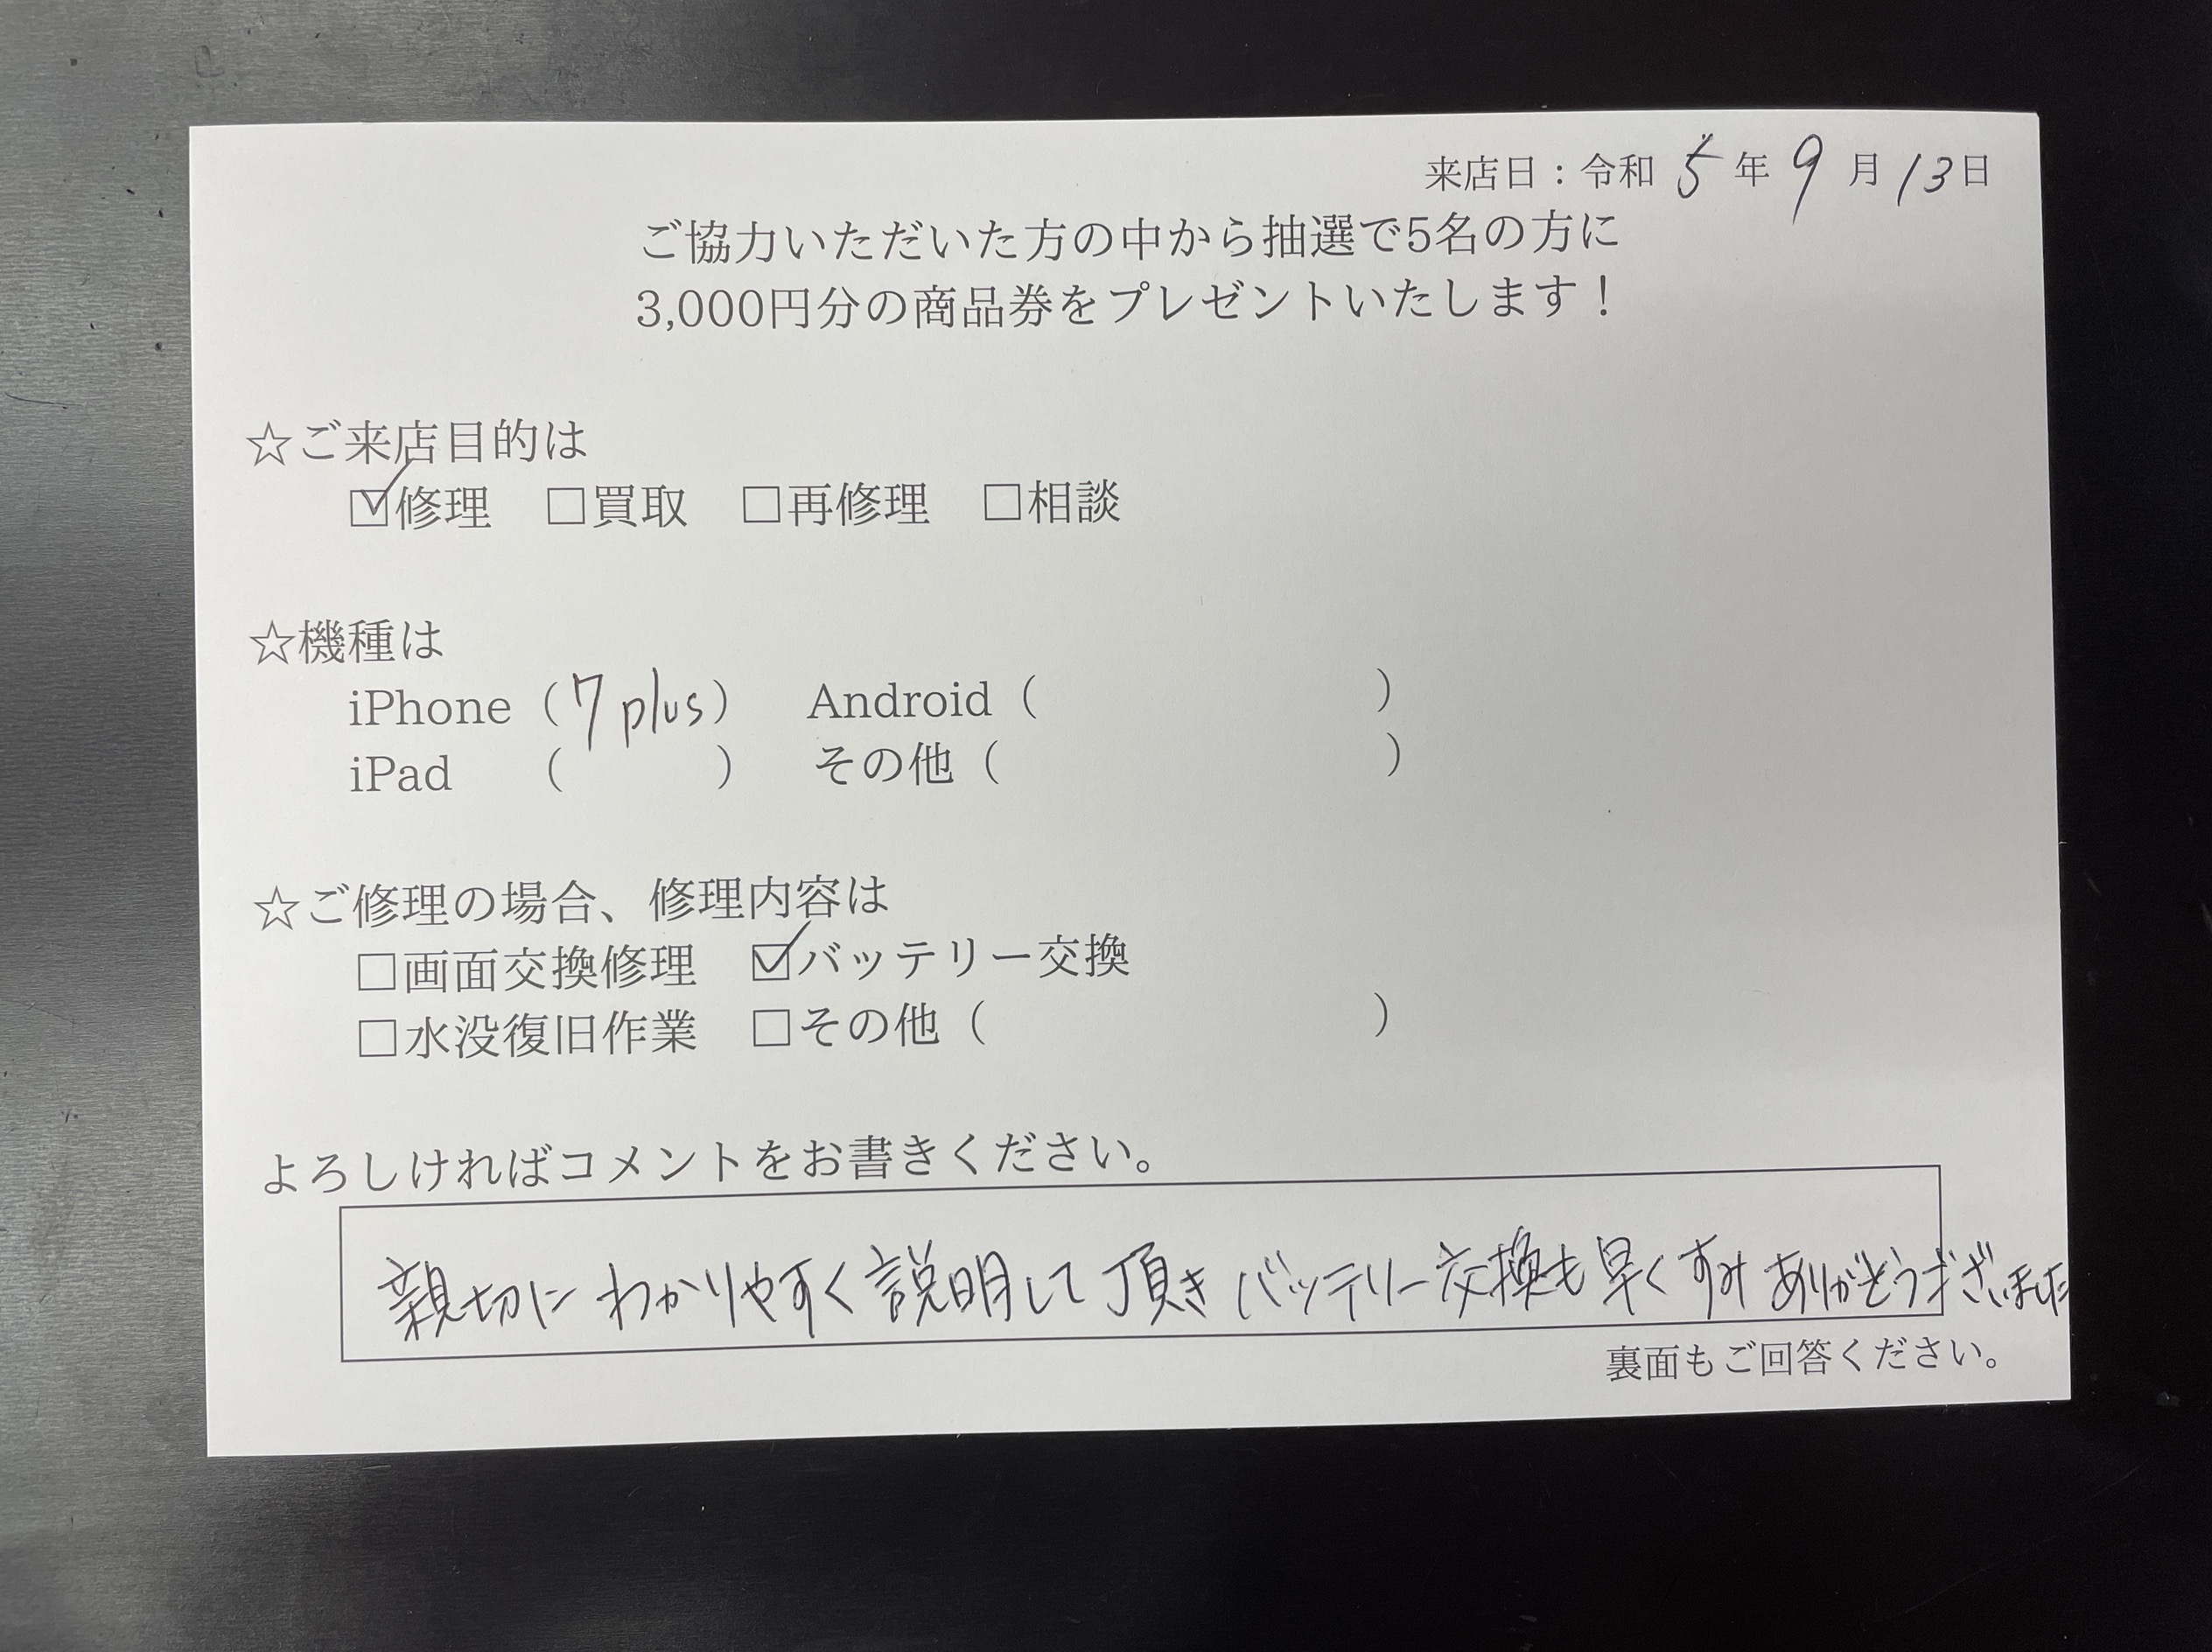 来店日：令和 5 年 9 月 13 日
ご協力いただいた方の中から抽選で5名の方に
3,000円分の商品券をプレゼントいたします！
☆ご来店目的は
☑修理 □買取 □再修理 □相談
☆機種は
iPhone（7 plus） Android（ ）
iPad （ ） その他（ ）
☆ご修理の場合、修理内容は
□画面交換修理 ☑バッテリー交換
□水没復旧作業 □その他（ ）
よろしければコメントをお書きください。
親切に わかりやすく 説明して 頂き バッテリー交換も 早く すみ ありがとうございました
裏面もご回答ください。